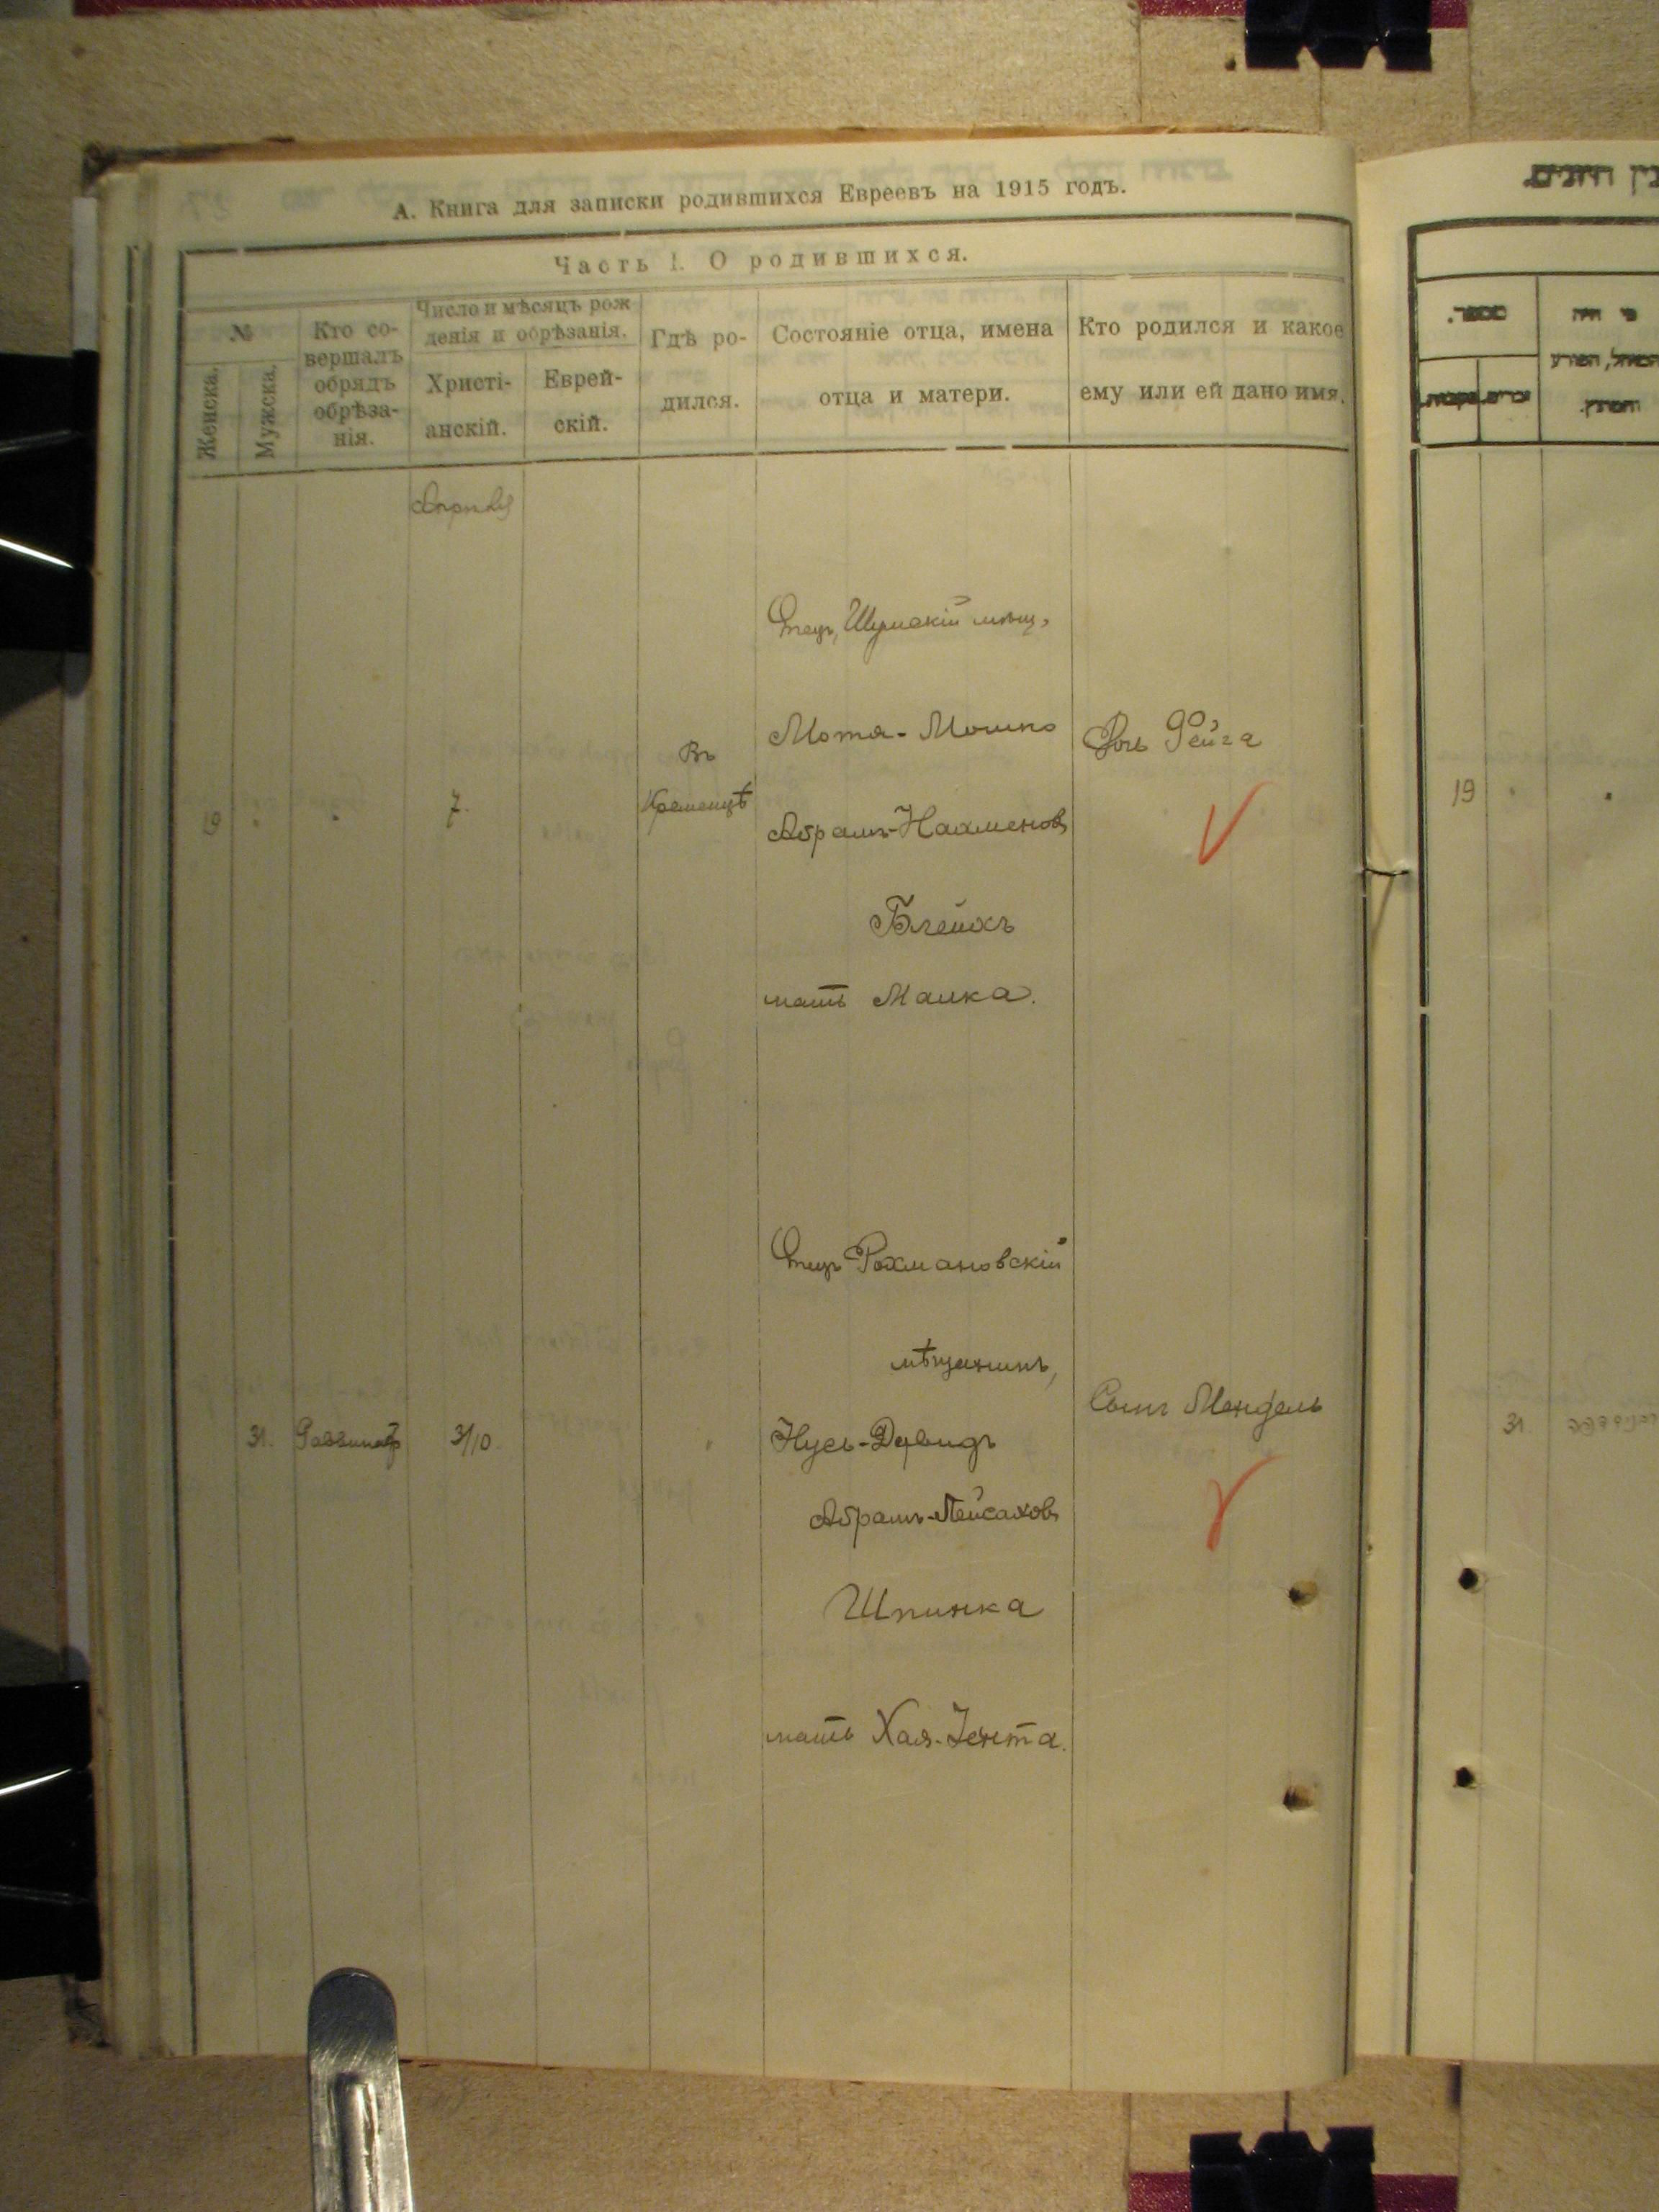 А. Книга для записки родившихся Евреевъ на 1915 годъ.
Часть I. О родившихся.
№
Женска.
Мужска.
Кто со-
вершалъ
обрядъ
обрѣза-
нія.
Число и мѣсяцъ рож
денія и обрѣзанія.
Христі-
анскій.
Еврей-
скій.
Гдѣ ро-
дился.
Состояніе отца, имена
отца и матери.
Кто родился и какое
ему или ей дано имя.
Апрѣля
19
7.
Въ
Кременцѣ
Отецъ, Шумскій мѣщ,
Мотя-Мошко
Абрамъ-Нахменовъ
Блейхъ
мать Малка.
Дочь Фейга
31.
3/10
Отецъ Рохмановскій
мѣщанинъ,
Нусь-Дувидъ
Абрамъ-Пейсаховъ
Шпинка
мать Хая-Іента.
Сынъ Мендель
מספר.
נקבות.
זכרים.
מי היה
המוהל, הפורע
והמוצץ.
19
31